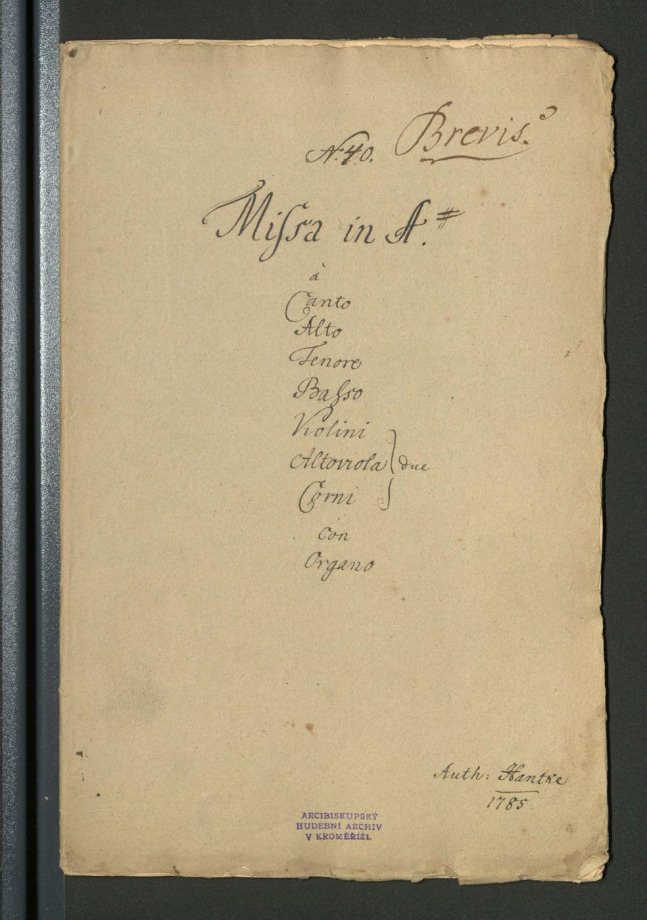 N. 40. Brevis.
Missa in A.#
à
Canto
Alto
Tenore
Basso
Violini
Altoviola } due
Corni
con
Organo
Auth: Hantke
1785.
ARCIBISKUPSKÝ
HUDEBNÍ ARCHIV
V KROMĚŘÍŽI.